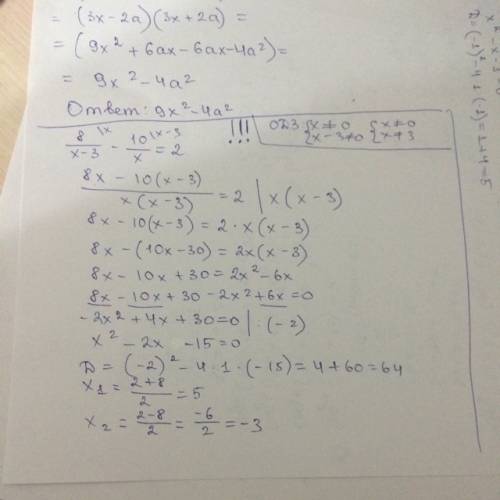 = (3x - 2a)(3x + 2a) =
= (9x² + 6ax - 6ax - 4a²) =
= 9x² - 4a²
Ответ: 9x² - 4a²
8/(x-3) |x - 10/x |x-3 = 2 !!! ОДЗ {x≠0 {x-3≠0 {x≠0 {x≠3
(8x - 10(x-3))/(x(x-3)) = 2 | x(x-3)
8x - 10(x-3) = 2·x(x-3)
8x - (10x-30) = 2x(x-3)
8x - 10x + 30 = 2x² - 6x
8x - 10x + 30 - 2x² + 6x = 0
-2x² + 4x + 30 = 0 | :(-2)
x² - 2x - 15 = 0
D = (-2)² - 4·1·(-15) = 4 + 60 = 64
x₁ = (2+8)/2 = 5
x₂ = (2-8)/2 = -6/2 = -3
D = (-1)² - 4·1·(-1) = 1 + 4 = 5